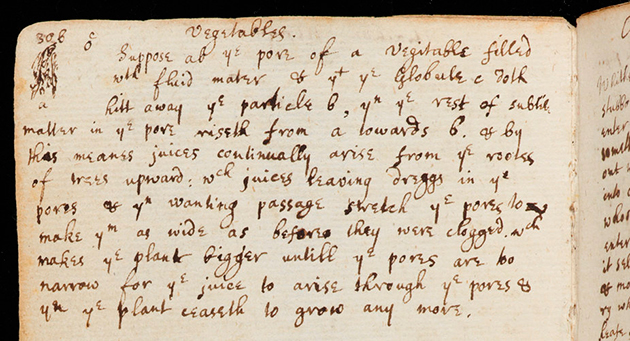 306 c Vegetables.
Suppose ab yᵉ pore of a Vegitable filled
wᵗʰ fluid mater & yᵗ yᵉ Globule c doth
a hitt away yᵉ particle b, yⁿ yᵉ rest of subtile
matter in yᵉ pore riseth from a towards b. & by
this meanes juices continually arise from yᵉ roots
of trees upward: wᶜʰ juices leaving dreggs in yᵉ
pores & yⁿ wanting passage stretch yᵉ pores to
make yᵐ as wide as before they were clogged. wᶜʰ
makes yᵉ plant bigger untill yᵉ pores are too
narrow for yᵉ juice to arise through yᵉ pores &
yⁿ yᵉ plant ceaseth to grow any more.